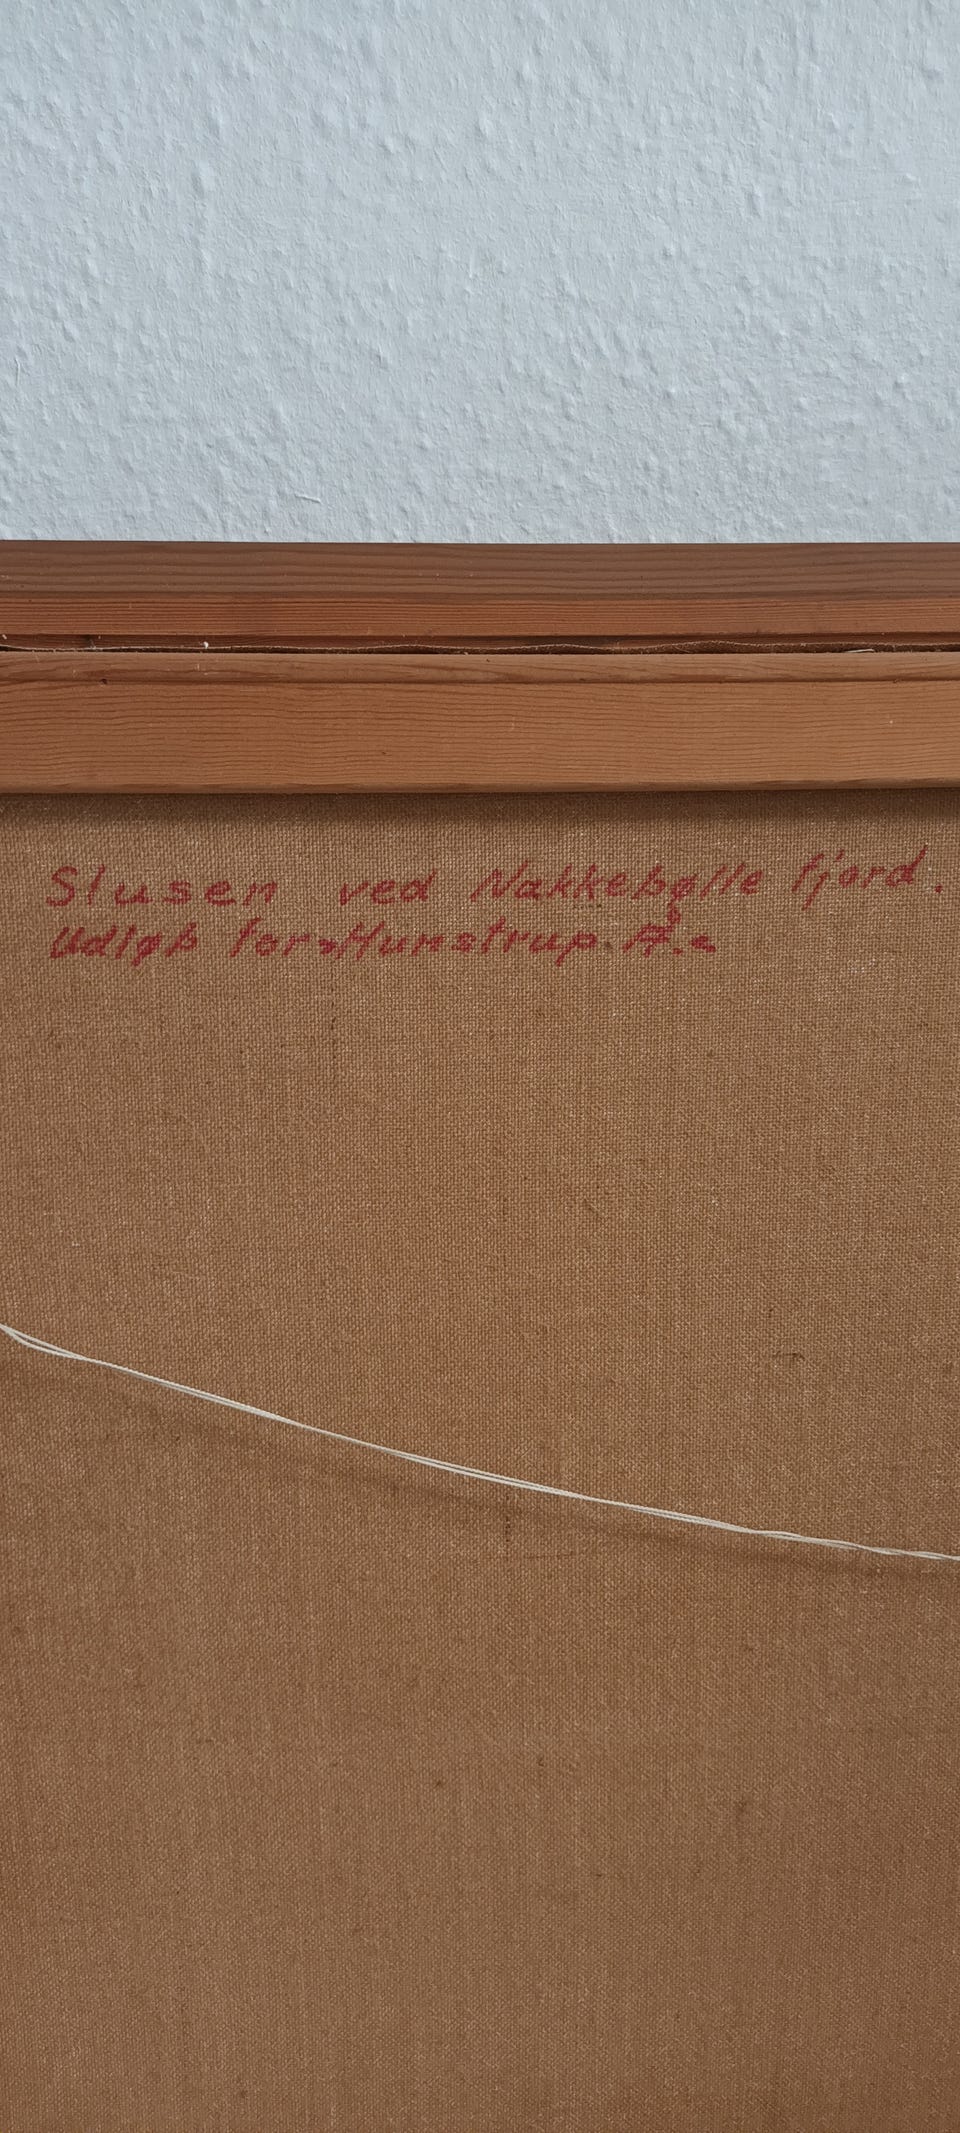 Slusen ved Nakkebølle fjord.
Udløb for »Hunstrup. Å.«